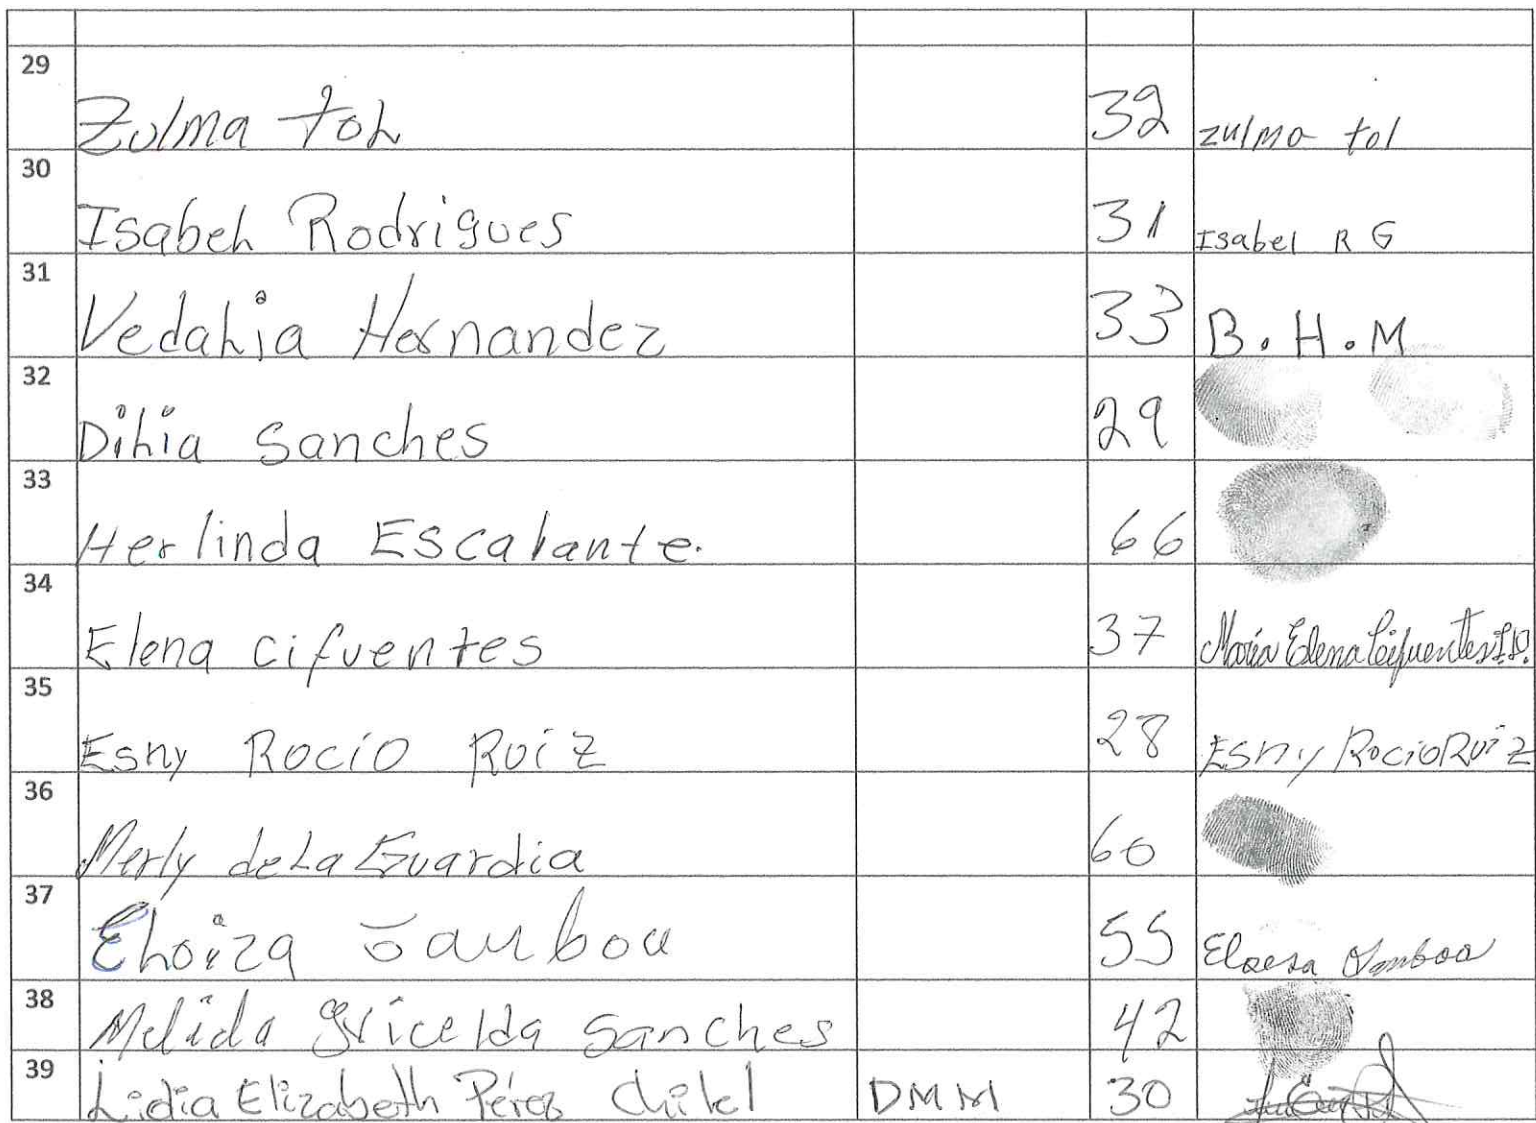 29 Zulma toL 32 zulma tol
30 IsabeL Rodrigues 31 Isabel R G
31 VedaLia Hernandez 33 B. H. M
32 DiLia Sanches 29
33 Herlinda Escalante. 66
34 Elena cifuentes 37 María Elena Cifuentes
35 Esny Rocío Ruiz 28 Esny Rocio Ruiz
36 Merly de La Guardia 60
37 ELoiza 55 Eloesa
38 Melida gricelda Sanches 42
39 Lidia Elizabeth Pérez DMM 30